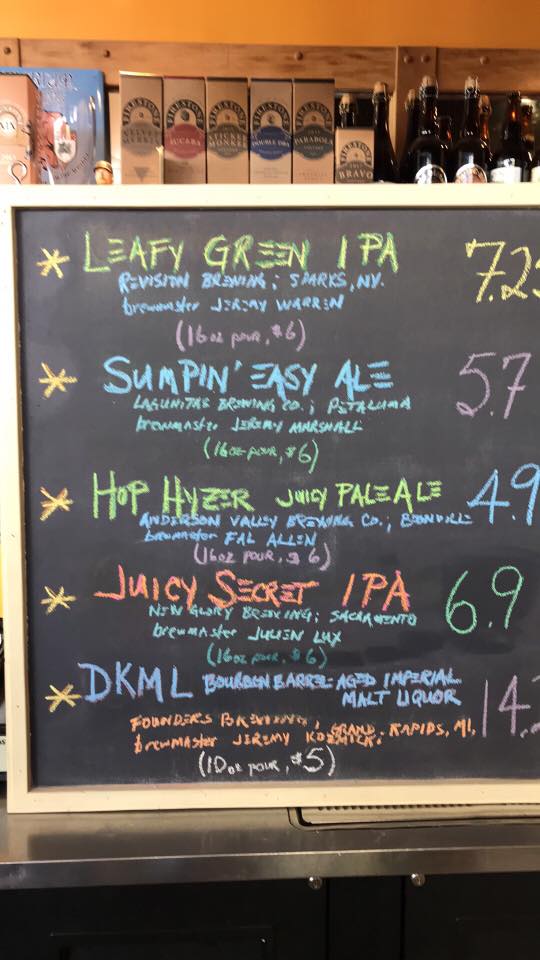 FIRESTONE FIRESTONE FIRESTONE FIRESTONE FIRESTONE FIRESTONE
VELVET MERKIN SUCABA STICKEE MONKEE DOUBLE DBA PARABOLA BRAVO
* LEAFY GREEN IPA 7.25
REVISION BREWING; SPARKS, NV.
brewmaster JEREMY WARREN
(16oz pour, $6)
* SUMPIN' EASY ALE 5.7
LAGUNITAS BREWING CO.; PETALUMA
brewmaster JEREMY MARSHALL
(16oz pour, $6)
* HOP HYZER JUICY PALE ALE 4.9
ANDERSON VALLEY BREWING CO.; BOONVILLE
brewmaster FAL ALLEN
(16oz pour, $6)
* JUICY SECRET IPA 6.9
NEW GLORY BREWING; SACRAMENTO
brewmaster JULIEN LUX
(16oz pour, $6)
* DKML BOURBON BARREL-AGED IMPERIAL
MALT LIQUOR 14.
FOUNDERS BREWING; GRAND RAPIDS, MI.
brewmaster JEREMY KOSMICKI.
(10oz pour, $5)